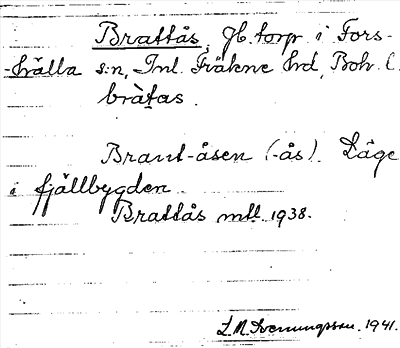 Brattås, Jb. torp i Fors-
-hälla s:n, Inl. Fräkne hd, Boh. l.
bràtas.
Brant-åsen (-ås). Läge
i fjällbygden.
Brattås mtl. 1938.
L.M. Svenungsson. 1941.